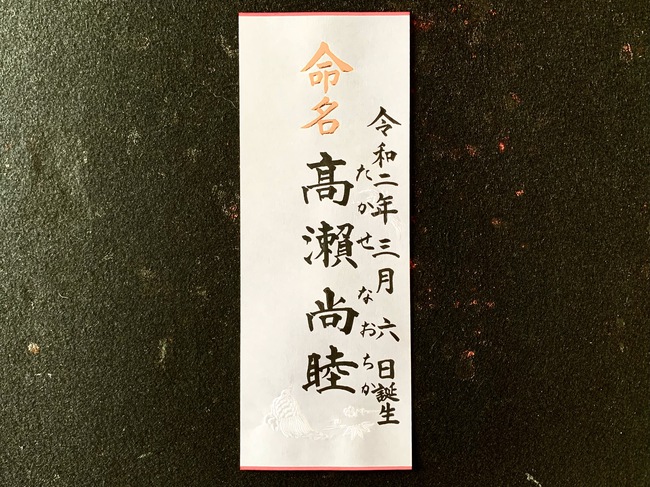 令和二年三月六日誕生
命名
髙瀨尚睦
たかせなおちか